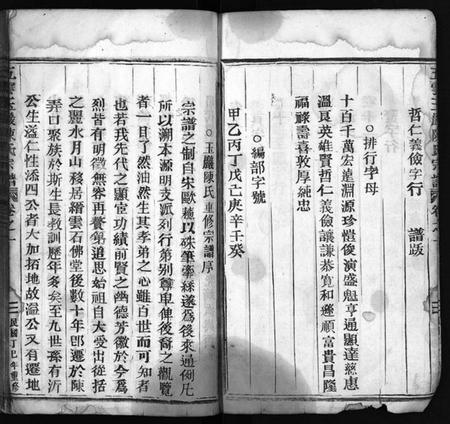 哲仁義儉字行　譜跋
○排行字母
十百千萬宏進淵源珍愷俊演盛魁亨通顯達慈惠
溫良英雄賢哲仁義儉讓謙恭寬和適順富貴昌隆
福祿壽喜敦厚純忠
○編部字號
甲乙丙丁戊己庚辛壬癸
○玉巖陳氏重修宗譜序
宗譜之制自宋歐蘇以硃筆牽絲遂為後來通例凡
所以溯本源明支派列行第別尊卑俾後裔之觀覽
者一目了然油然生其孝弟之心雖百世而可知者
也若我先代之顯宦功績前賢之幽德芳徽於今為
烈皆有明徵無容再贅第追思始祖自大受出從括
之麗水月山移居縉雲石佛堂後數十年即遷於陳
弄口聚族於斯生長教訓歷年多矣至九世孫有沂
公生溢仁性添四公者大加拓地故溢公又有遷地
民國丁巳年重修